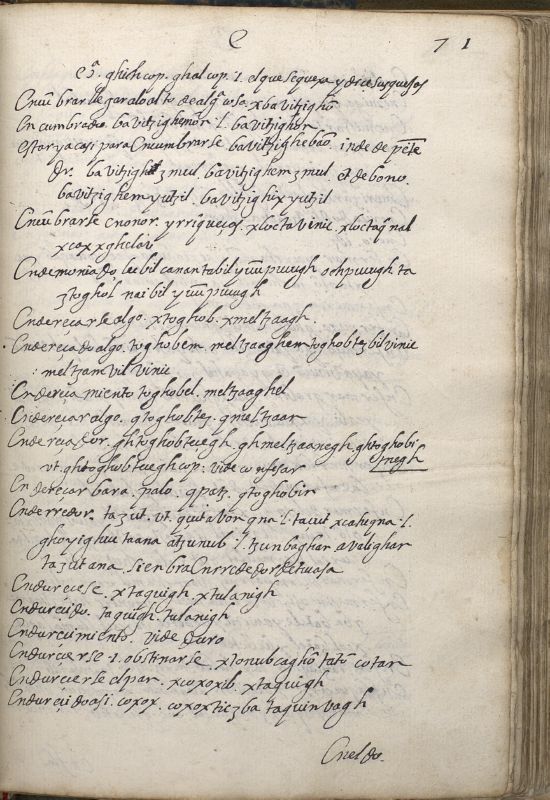 E 71
qħ. ghich cop. ghal cop. l. el que se quexa y dice sus quexas
Encūbrar llegar a lo alto de alq̃ cosa. xbavitzighõ
Encumbrado. bavitzighemor. l. bavitzighor.
estar ya casi para Encumbrarse. bavitzighebaõ. inde de p̃ēte
dr. bavitzigh zmul. bavitzighem zmul. et de bono.
bavitzighem yutzil. bavitzighix yutzil
Encūbrarse en onor. y rriquezas. xloctavinic. xloctaq̃nal
xcoxxghelav
Endemoniado
ztoghol naibil pucugh
Endereçarse algo. xtoghob. xmeltzaagh.
Endereçado algo. toghobem. meltzaaghem toghobtezbil vinic
meltzamvil vinic
Endereçamiento toghobel. meltzaaghel
Endereçar algo. qtoghobtez. qmeltzaan
Endereçador. ghtoghobtevegh. ghmeltzaanegh. ghtoghobi
vt. ghtoghobtevegh cop. vide confesar tnegh
Enderezar bara. palo. qpatz. qtoghobin
Enderredor. tazut. vt. qna l. tazut xcahuqna. l.
tazutana. siembra en rrededor de tu casa
Endurecese. xtaquigh. xtulanigh
Endurecido. taquigh. tulanigh
Endurecimiento. vide duro
Endurecerse .l. obstinarse. xtonubcaghõ tatũ cotan
Endurecerse el pan. xcoxoxib. xtaquigh
Endurecido asi. coxox. coxoxtiezba taquinvagh
Eneldo.